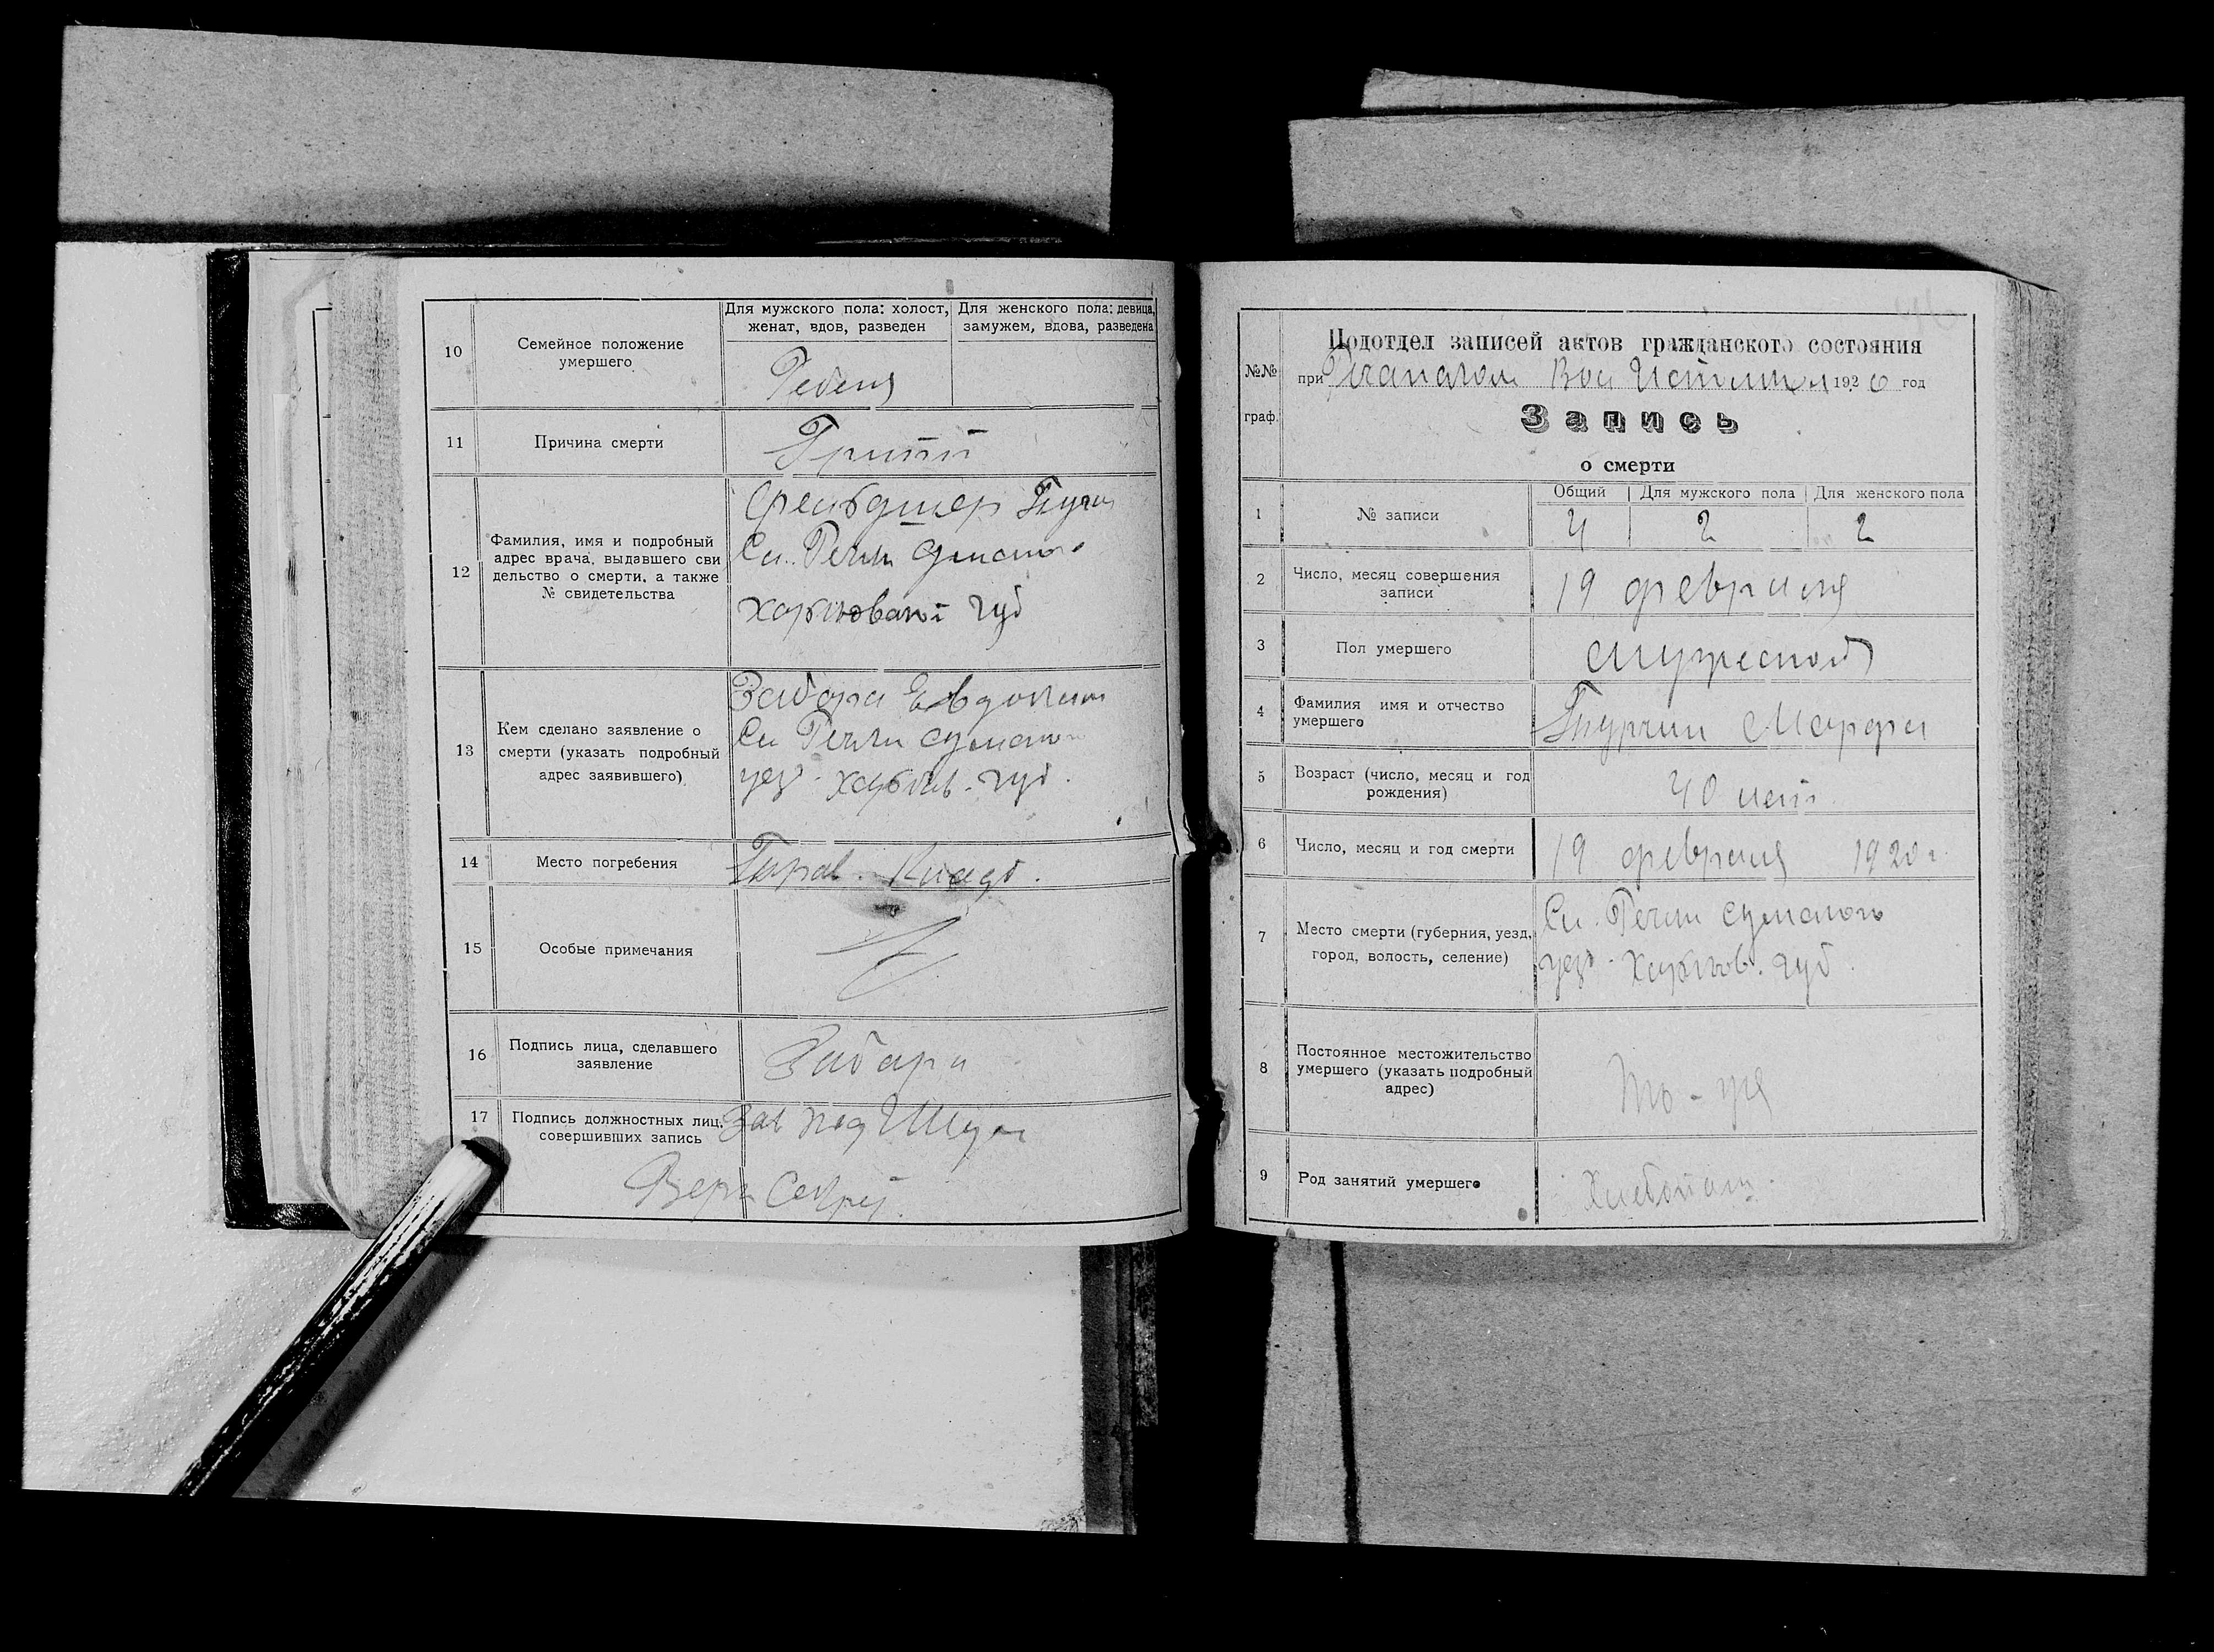 10
Семейное положение
умершего
Для мужского пола: холост,
женат, вдов, разведен
Для женского пола: девица,
замужем, вдова, разведена
11
Причина смерти
Грипп
12
Фамилия, имя и подробный
адрес врача, выдавшего сви
дельство о смерти, а также
№ свидетельства
Фельдшер
Сл. Речки Сумского
Харьковской губ
13
Кем сделано заявление о
смерти (указать подробный
адрес заявившего)
Забара Евдоким
Сл Речки Сумского
уез. Харьков. губ.
14
Место погребения
Кладб.
15
Особые примечания
16
Подпись лица, сделавшего
заявление
Забара
17
Подпись должностных лиц,
совершивших запись
Зав под
Секрет.
№№
граф.
Подотдел записей актов гражданского состояния
при Речанском Вол Исполком 1920 год
Запись
о смерти
1
№ записи
Общий
Для мужского пола
Для женского пола
4
2
2
2
Число, месяц совершения
записи
19 февраля
3
Пол умершего
Мужеской
4
Фамилия имя и отчество
умершего
5
Возраст (число, месяц и год
рождения)
40 лет
6
Число, месяц и год смерти
19 февраля 1920 г.
7
Место смерти (губерния, уезд,
город, волость, селение)
Сл. Речки Сумского
уез. Харьков. губ.
8
Постоянное местожительство
умершего (указать подробный
адрес)
9
Род занятий умершего
Хлебопаш.